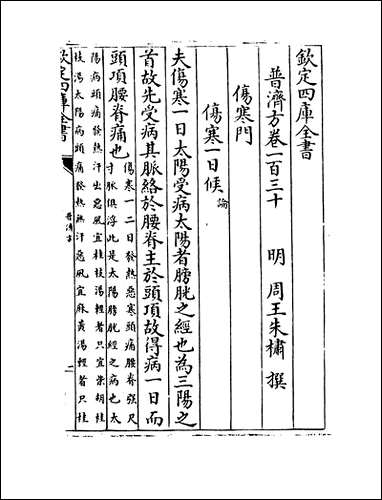 欽定四庫全書
普濟方卷一百三十
明 周王朱橚 撰
傷寒門
傷寒一日候 論
夫傷寒一日太陽受病太陽者膀胱之經也為三陽之
首故先受病其脈絡於腰脊主於頭項故得病一日而
頭項腰脊痛也
傷寒一二日發熱惡寒頭痛腰脊強尺
寸脈俱浮此是太陽膀胱經之病也太
陽病頭痛發熱汗出惡風宜桂枝湯輕者只宜柴胡桂
枝湯太陽病頭痛發熱無汗惡風宜麻黄湯輕者只桂
欽定四庫全書
普濟方